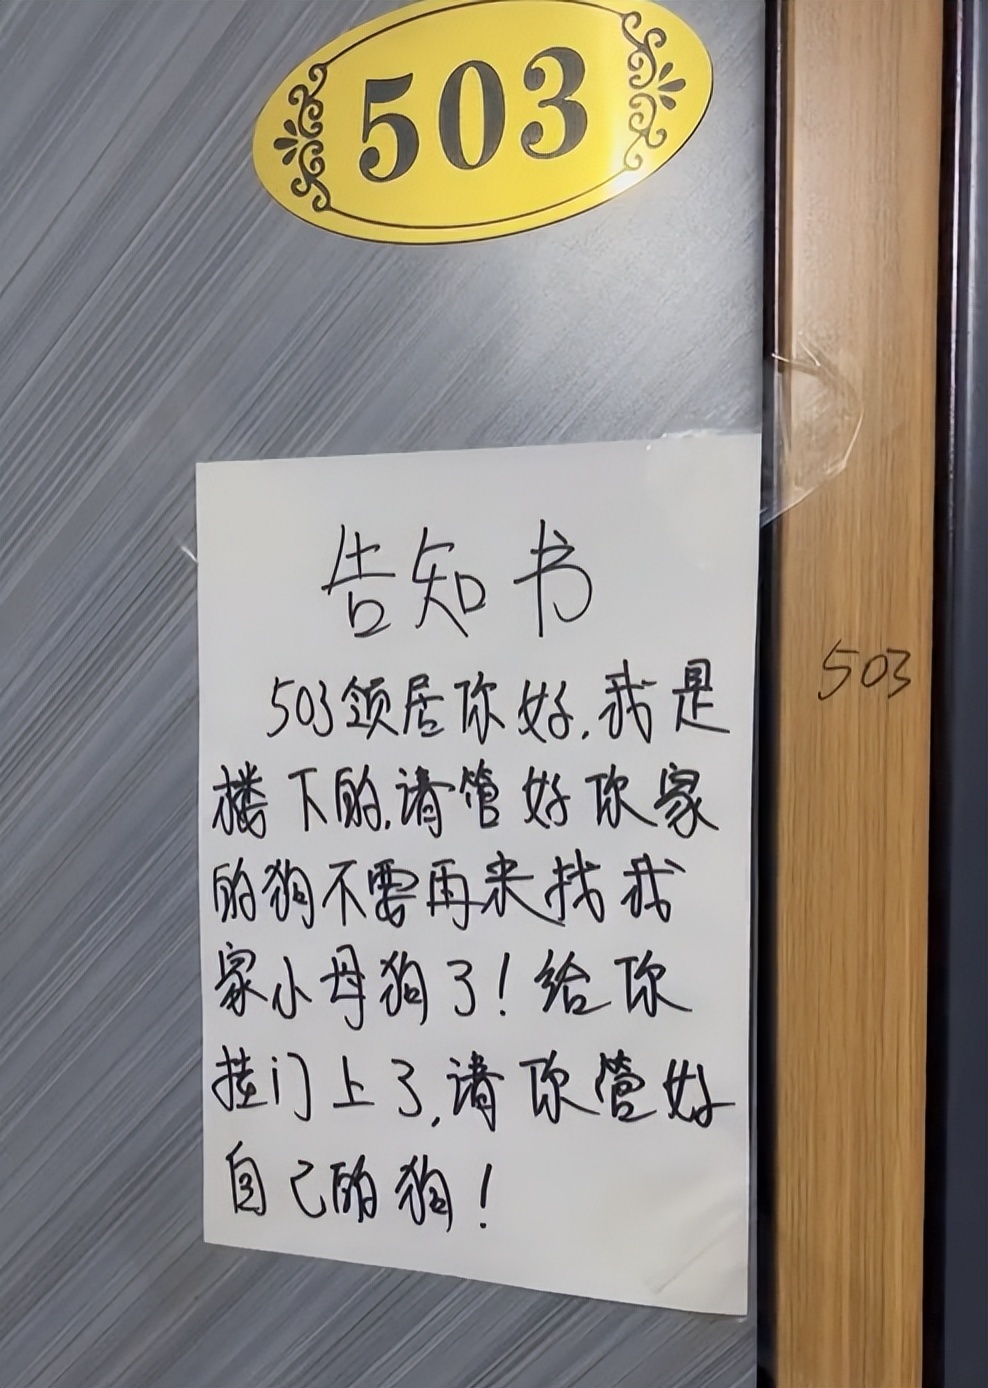 503
告知书
503领居你好,我是
楼下的,请管好你家
的狗不要再来找我
家小母狗了!给你
挂门上了,请你管好
自己的狗!
503